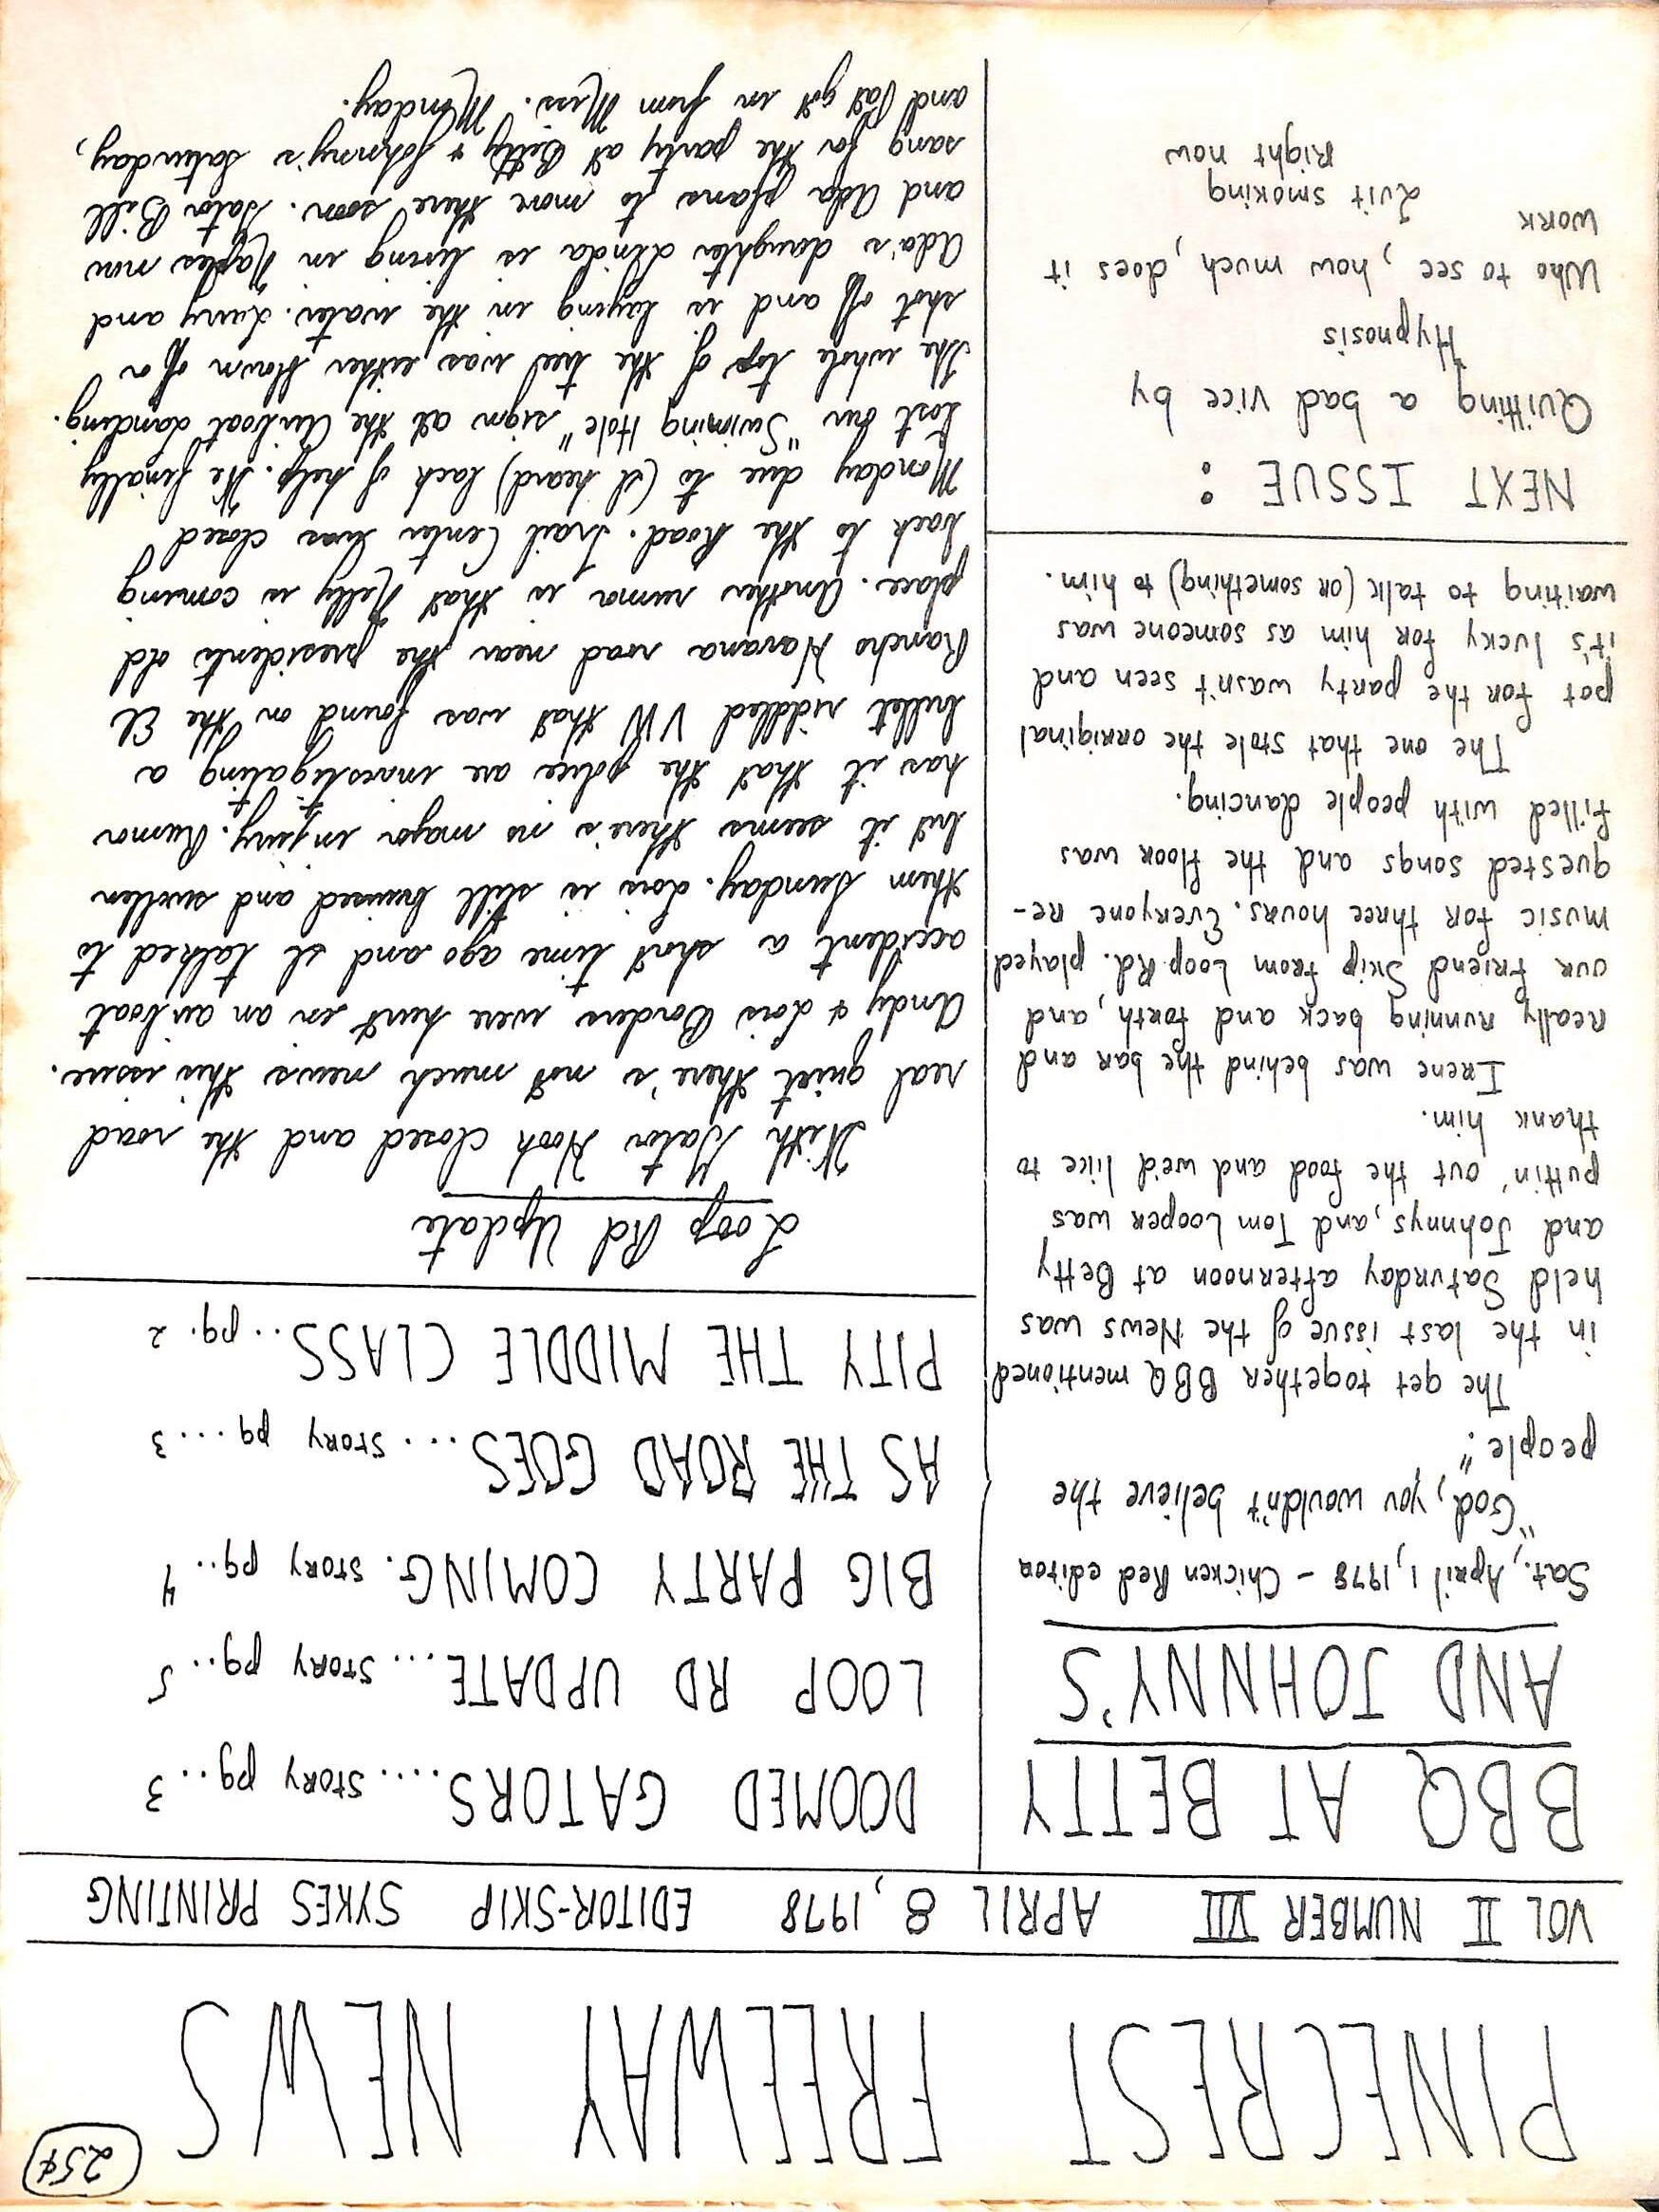 25¢
PINECREST FREEWAY NEWS
VOL II NUMBER VII APRIL 8, 1978 EDITOR-SKIP SYKES PRINTING
BBQ AT BETTY
AND JOHNNY'S
Sat., April 1, 1978 - Chicken Red editor
"God, you wouldn't believe the
people".
The get together BBQ mentioned
in the last issue of the News was
held Saturday afternoon at Betty
and Johnnys, and Tom Looper was
puttin' out the food and we'd like to
thank him.
Irene was behind the bar and
Really running back and forth, and
our friend Skip from Loop Rd. played
music for three hours. Everyone re-
quested songs and the floor was
filled with people dancing.
The one that stole the orriginal
pot for the party wasn't seen and
it's lucky for him as someone was
waiting to talk (or something) to him.
NEXT ISSUE :
Quitting a bad vice by
Hypnosis
Who to see, how much, does it
work
Quit smoking
Right now
DOOMED GATORS.... story pg.. 3
LOOP RD UPDATE... story pg.. 5
BIG PARTY COMING. story pg.. 4
AS THE ROAD GOES... story pg.... 3
PITY THE MIDDLE CLASS... pg. 2
Loop Rd Update
With Gator Hook closed and the road
real quiet there's not much news this issue.
Andy + Lois Borders were hurt in an airboat
accident a short time ago and I talked to
them Sunday. Lois is still bruised and swollen
but it seems there's no major injury. Rumor
has it that the police are investigating a
bullet riddled VW that was found on the El
Rancho Havana road near the presidents old
place. Another rumor is that Nelly is coming
back to the Road. Trail Center was closed
Monday due to (I heard) lack of help. We finally
lost our "Swimming Hole" sign at the Airboat Landing.
The whole top of the tree was either blown off or
shot off and is laying in the water. Larry and
Ada's daughter Linda is living in Naples now
and Ada plans to move there soon. Gator Bill
sang for the party at Betty + Johnny's Saturday,
and Pat got in from Miss. Monday.